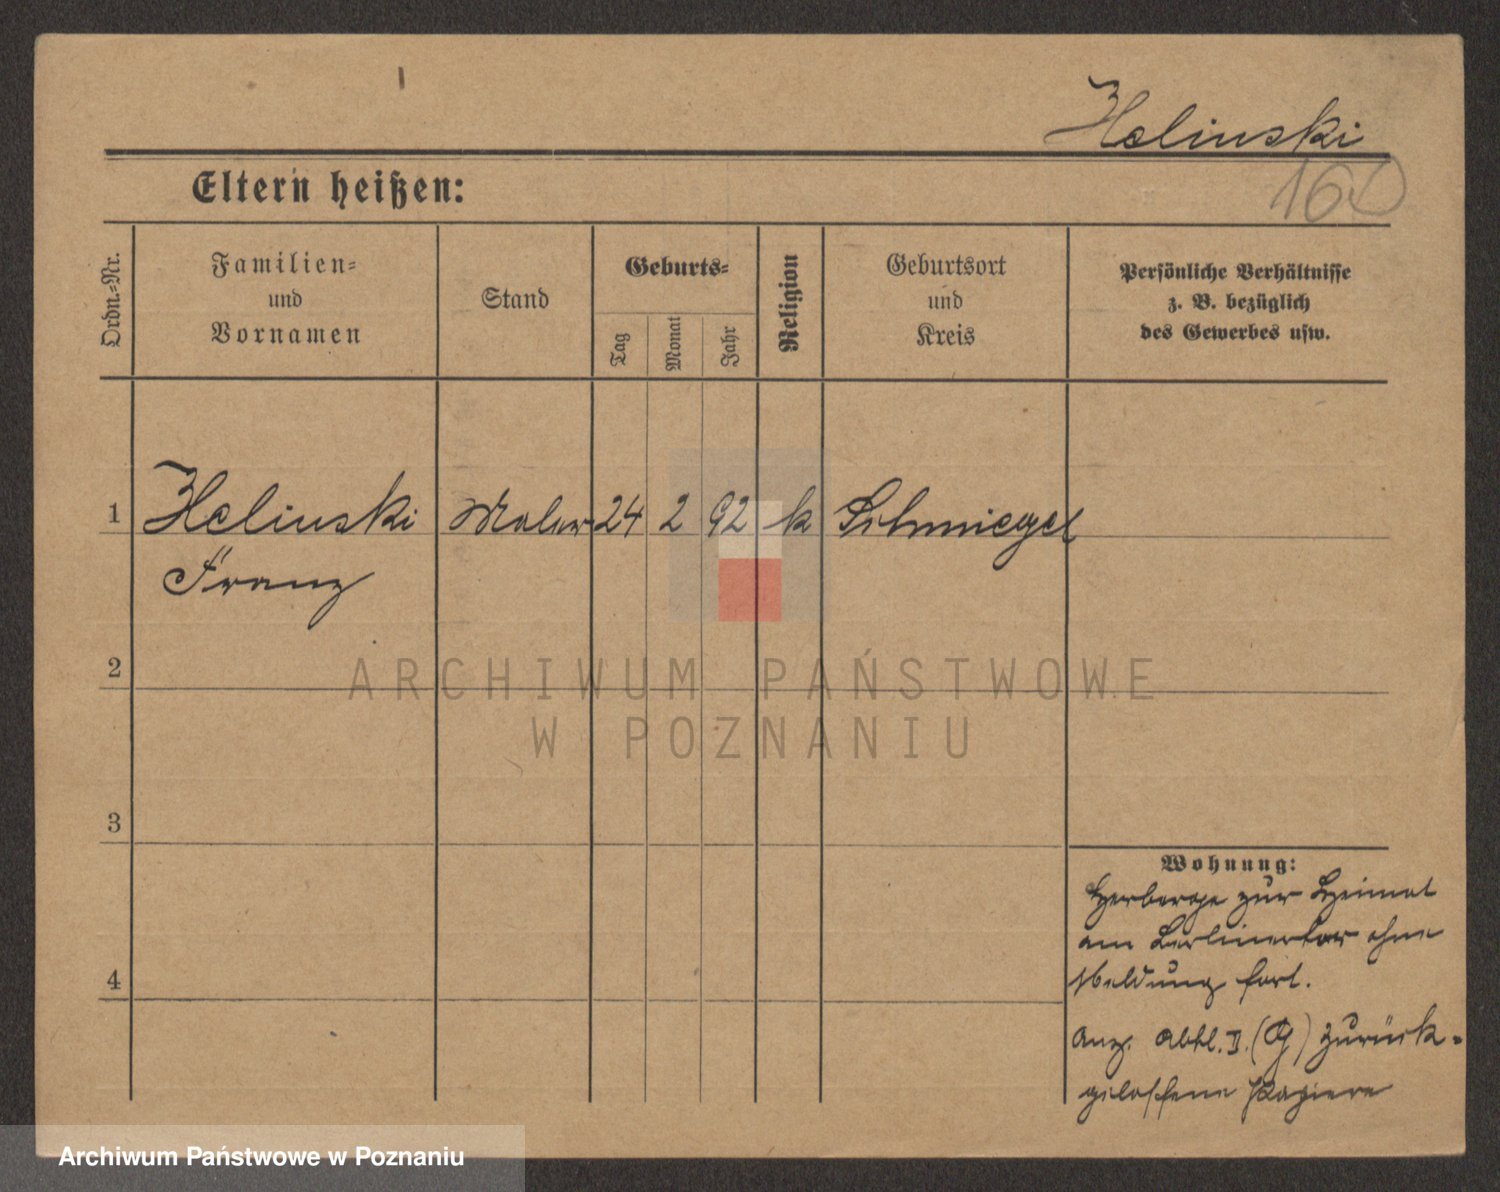 Helinski
160
Eltern heißen:
Ordn.-Nr.
Familien-
und
Vornamen
Stand
Geburts-
Tag
Monat
Jahr
Religion
Geburtsort
und
Kreis
Persönliche Verhältnisse
z. B. bezüglich
des Gewerbes usw.
1 Helinski Maler 24 2 92 k Schmiegel
Franz
2
3
4
Wohnung:
Herberge zur Heimat
am Berlinertor ohne
Meldung fort.
Anz. Abtl. II. (G) zurück-
gelassene Papiere
ARCHIWUM PAŃSTWOWE
W POZNANIU
Archiwum Państwowe w Poznaniu